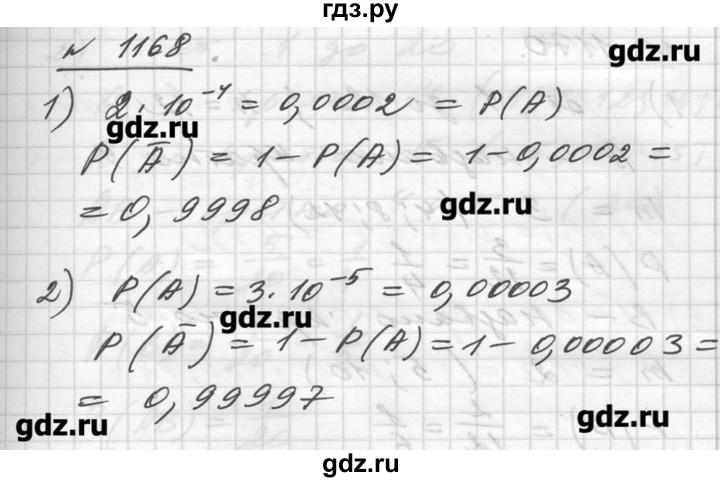 гдз.ру
№ 1168.
gdz.ru
1) 2·10⁻⁴ = 0,0002 = P(A)
gdz.ru
P(Ā) = 1 - P(A) = 1 - 0,0002 =
= 0,9998
gdz.ru
2) P(A) = 3·10⁻⁵ = 0,00003
gdz.ru
P(Ā) = 1 - P(A) = 1 - 0,00003 =
= 0,99997
gdz.ru
gdz.ru
gdz.ru